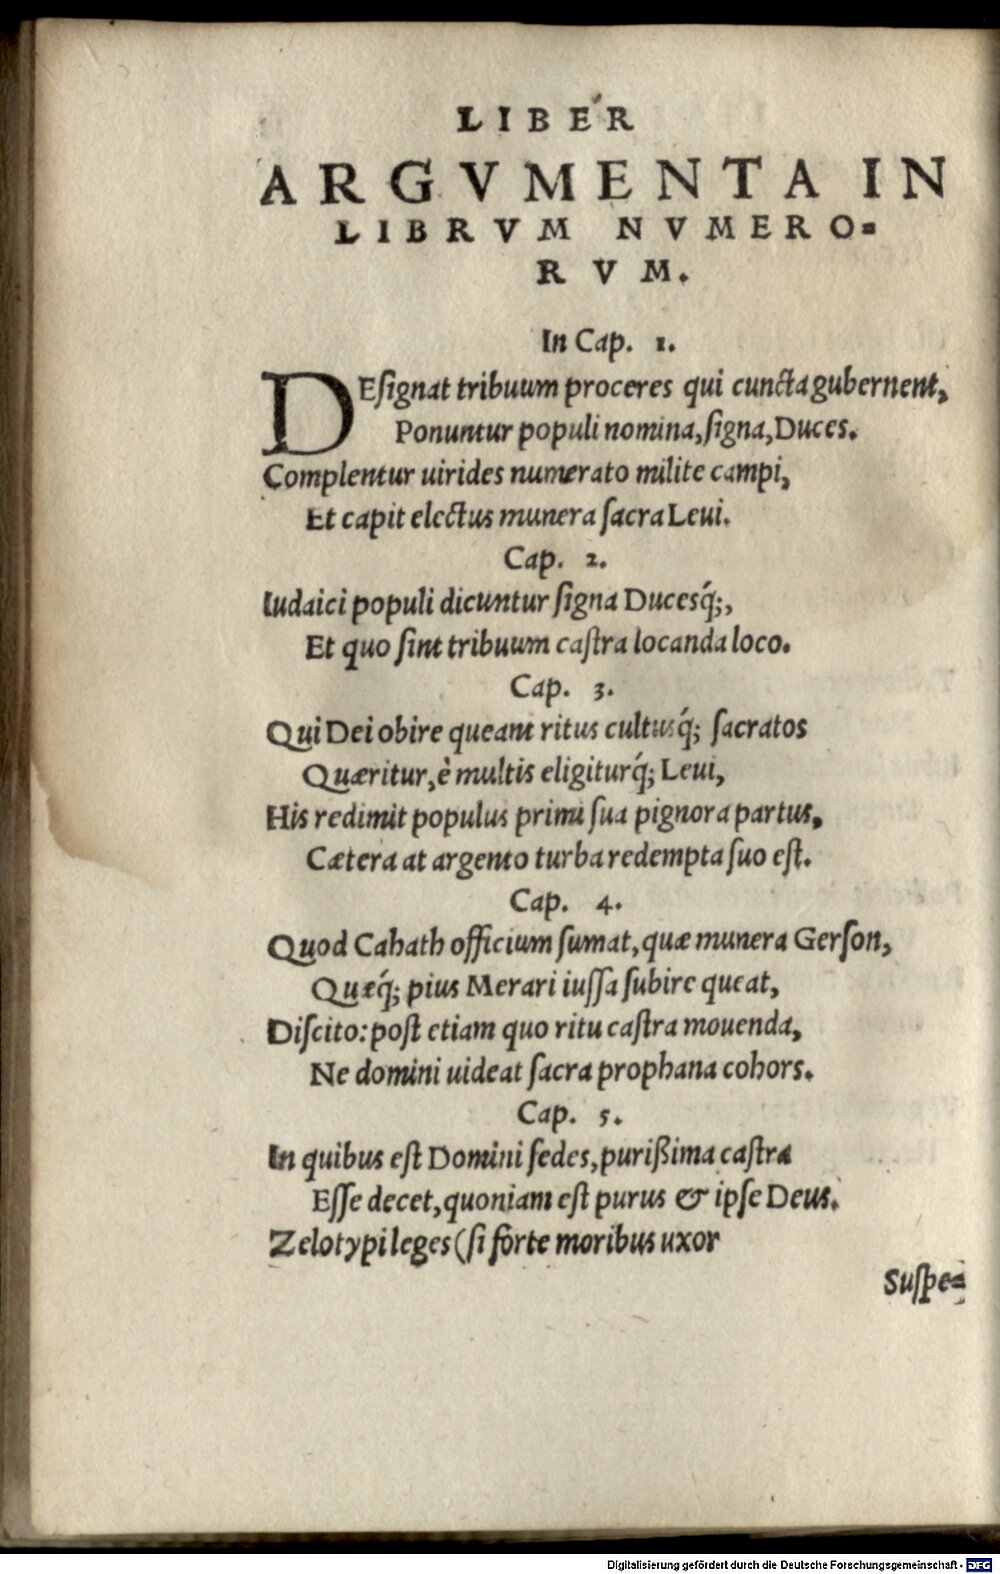 LIBER
ARGVMENTA IN
LIBRVM NVMERO-
RVM.
In Cap. 1.
DEſignat tribuum proceres qui cuncta gubernent,
Ponuntur populi nomina, ſigna, Duces.
Complentur uirides numerato milite campi,
Et capit electus munera ſacra Leui.
Cap. 2.
Iudaici populi dicuntur ſigna Ducesq́;,
Et quo ſint tribuum caſtra locanda loco.
Cap. 3.
Qui Dei obire queant ritus cultusq́; ſacratos
Quæritur, è multis eligiturq́; Leui,
His redimit populus primi ſua pignora partus,
Cætera at argento turba redempta ſuo eſt.
Cap. 4.
Quod Cahath officium ſumat, quæ munera Gerſon,
Quæq́; pius Merari iuſſa ſubire queat,
Diſcito: poſt etiam quo ritu caſtra mouenda,
Ne domini uideat ſacra prophana cohors.
Cap. 5.
In quibus eſt Domini ſedes, purißima caſtra
Eſſe decet, quoniam eſt purus & ipſe Deus.
Zelotypi leges (ſi forte moribus uxor
Suſpe-
Digitalisierung gefördert durch die Deutsche Forschungsgemeinschaft - DFG